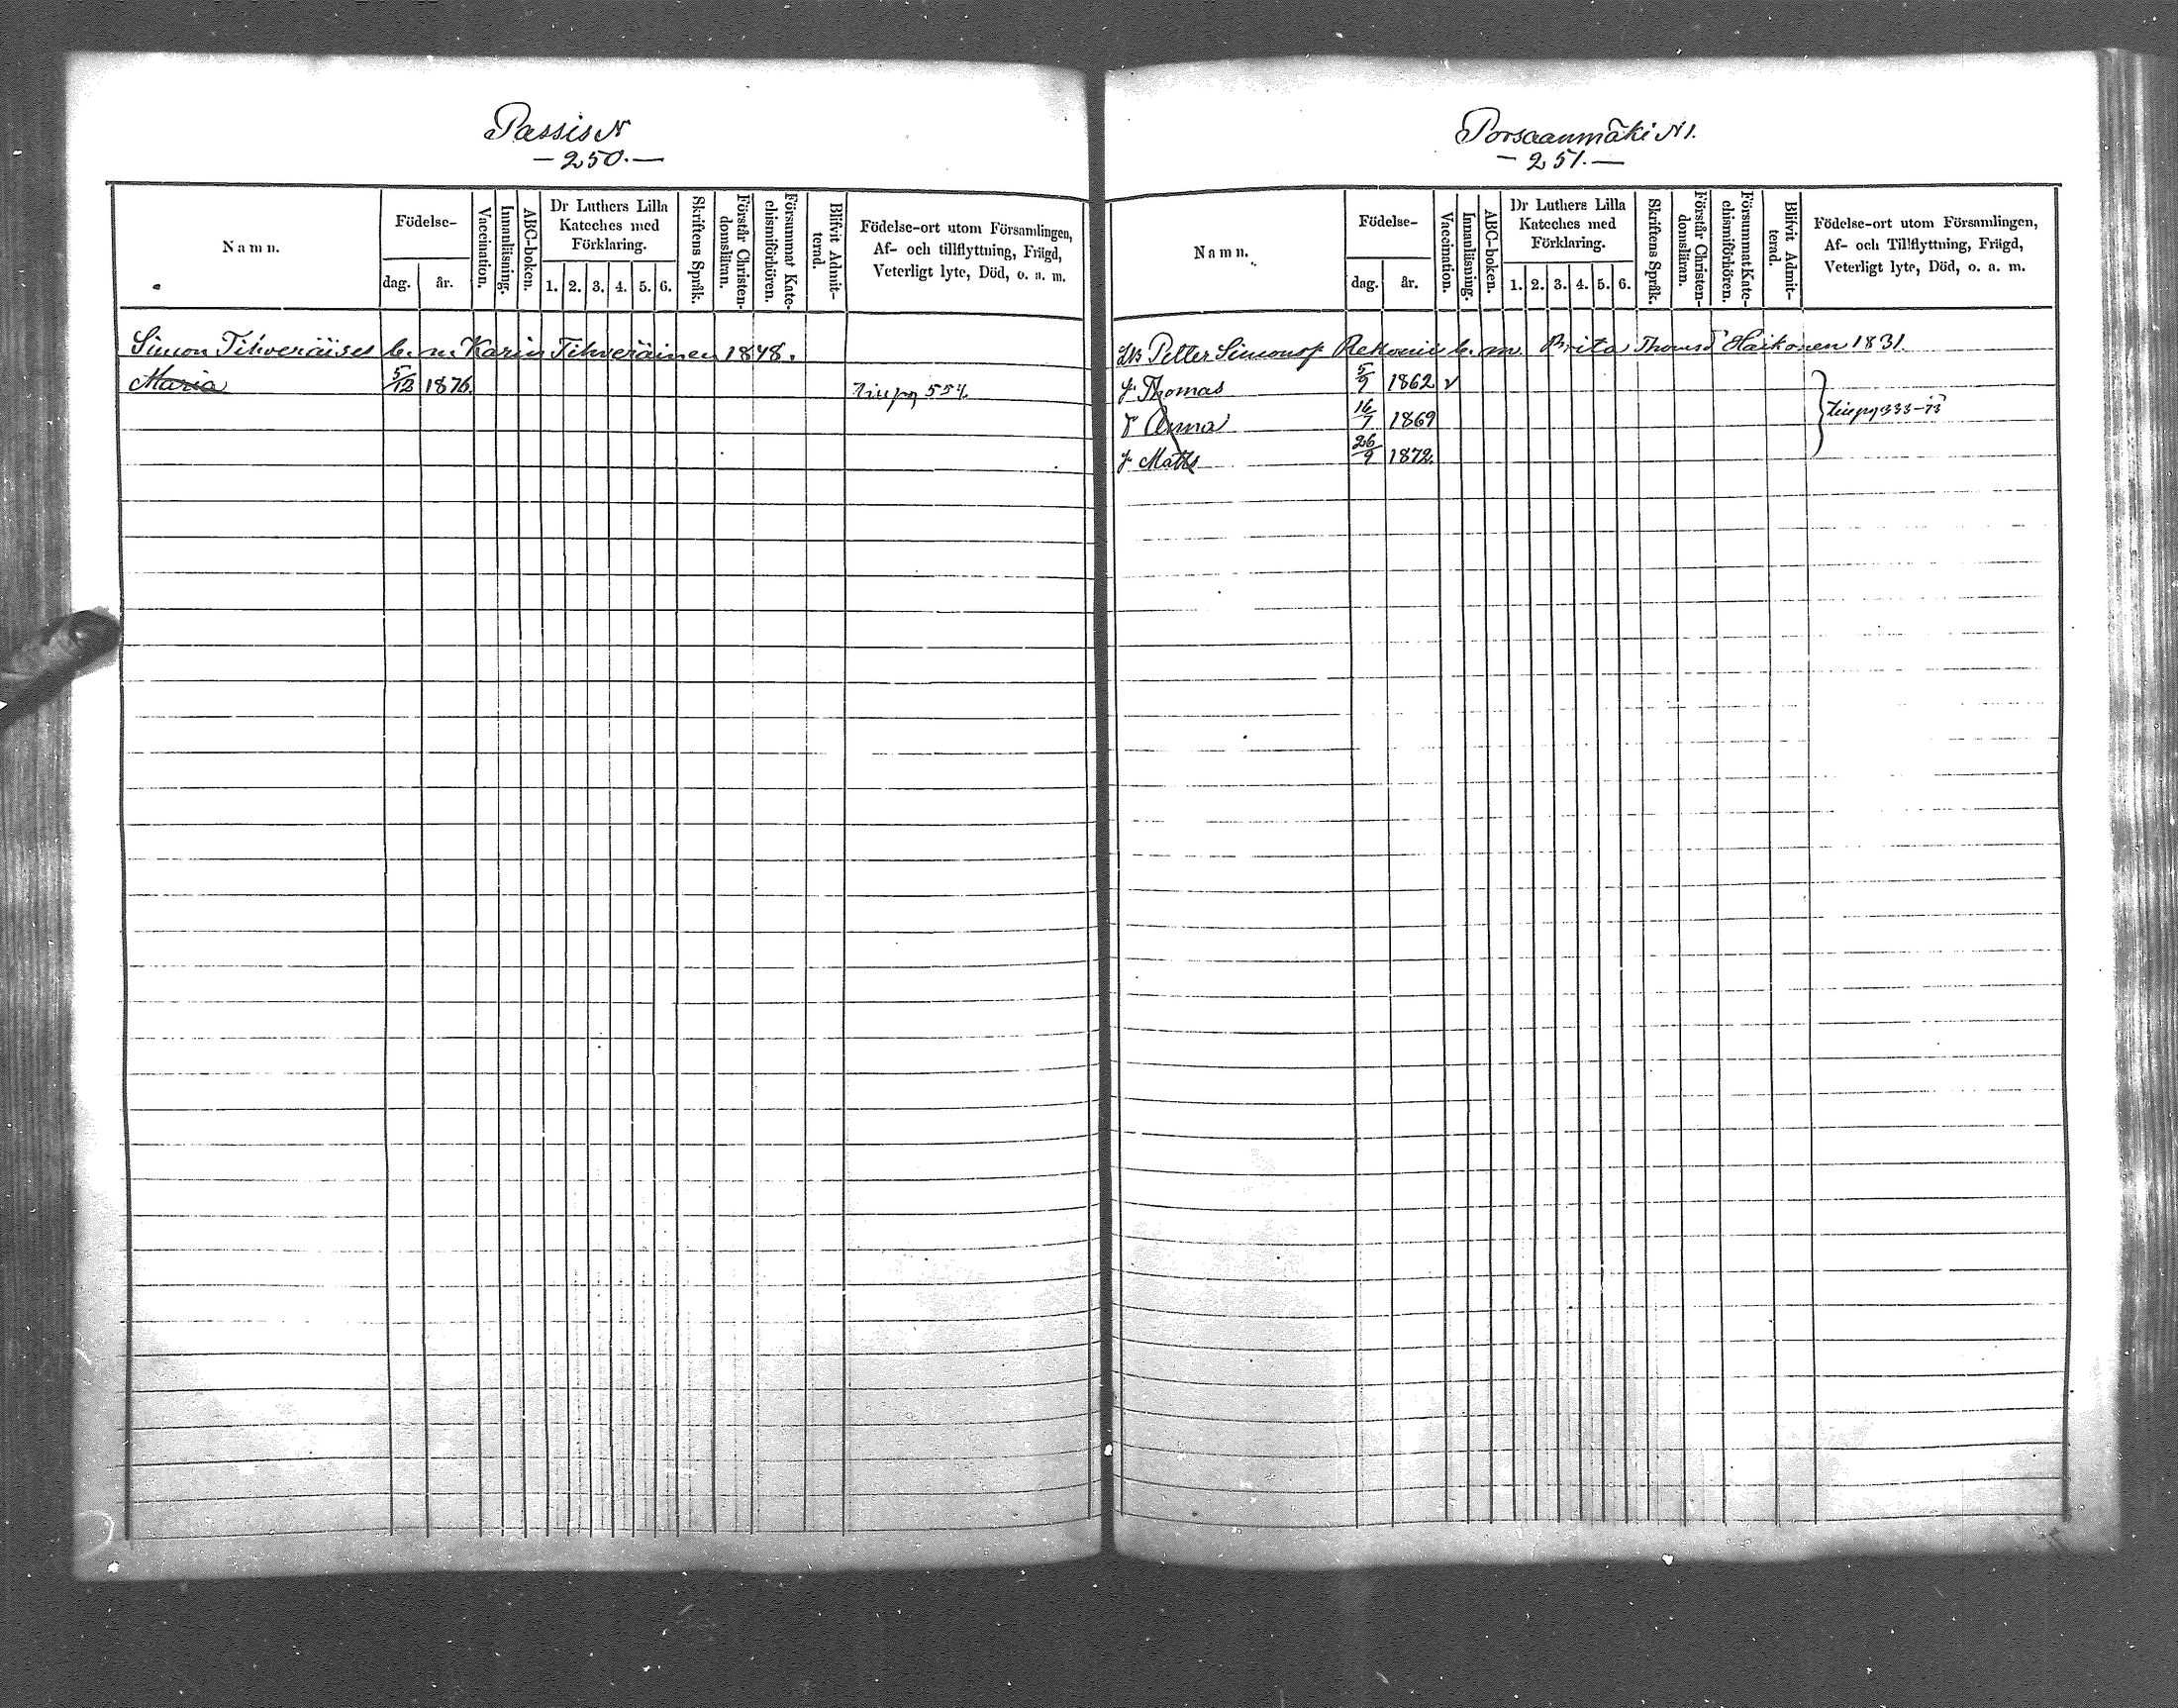 Passis N
— 250. —
Namn.
Födelse-
dag.
år.
Vaccination.
Innanläsning.
ABC-boken.
Dr Luthers Lilla
Kateches med
Förklaring.
1. 2. 3. 4. 5. 6.
Skriftens Språk.
Förstår Christen-
domsläran.
Försummat Kate-
chismiförhören.
Blifvit Admit-
terad.
Födelse-ort utom Församlingen,
Af- och tillflyttning, Frägd,
Veterligt lyte, Död, o. a. m.
Simon Tihveräises b. m. Karin Tihveräinen 1848.
Maria 5/12 1876. 554.
Porsaanmäki N 1.
— 251. —
Namn.
Födelse-
dag.
år.
Vaccination.
Innanläsning.
ABC-boken.
Dr Luthers Lilla
Kateches med
Förklaring.
1. 2. 3. 4. 5. 6.
Skriftens Språk.
Förstår Christen-
domsläran.
Försummat Kate-
chismiförhören.
Blifvit Admit-
terad.
Födelse-ort utom Församlingen,
Af- och Tillflyttning, Frägd,
Veterligt lyte, Död, o. a. m.
Petter Simonsp b. m. Brita Thomsd Haikonen 1831.
Thomas 5/9 1862 v
Anna 16/7 1869
Matts 26/9 1872.
333-